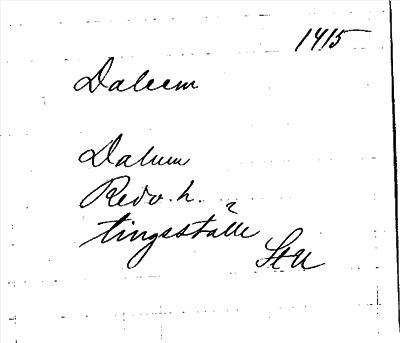 1415
Daleem
Dalum
Redv. h.
tingsställe
StU